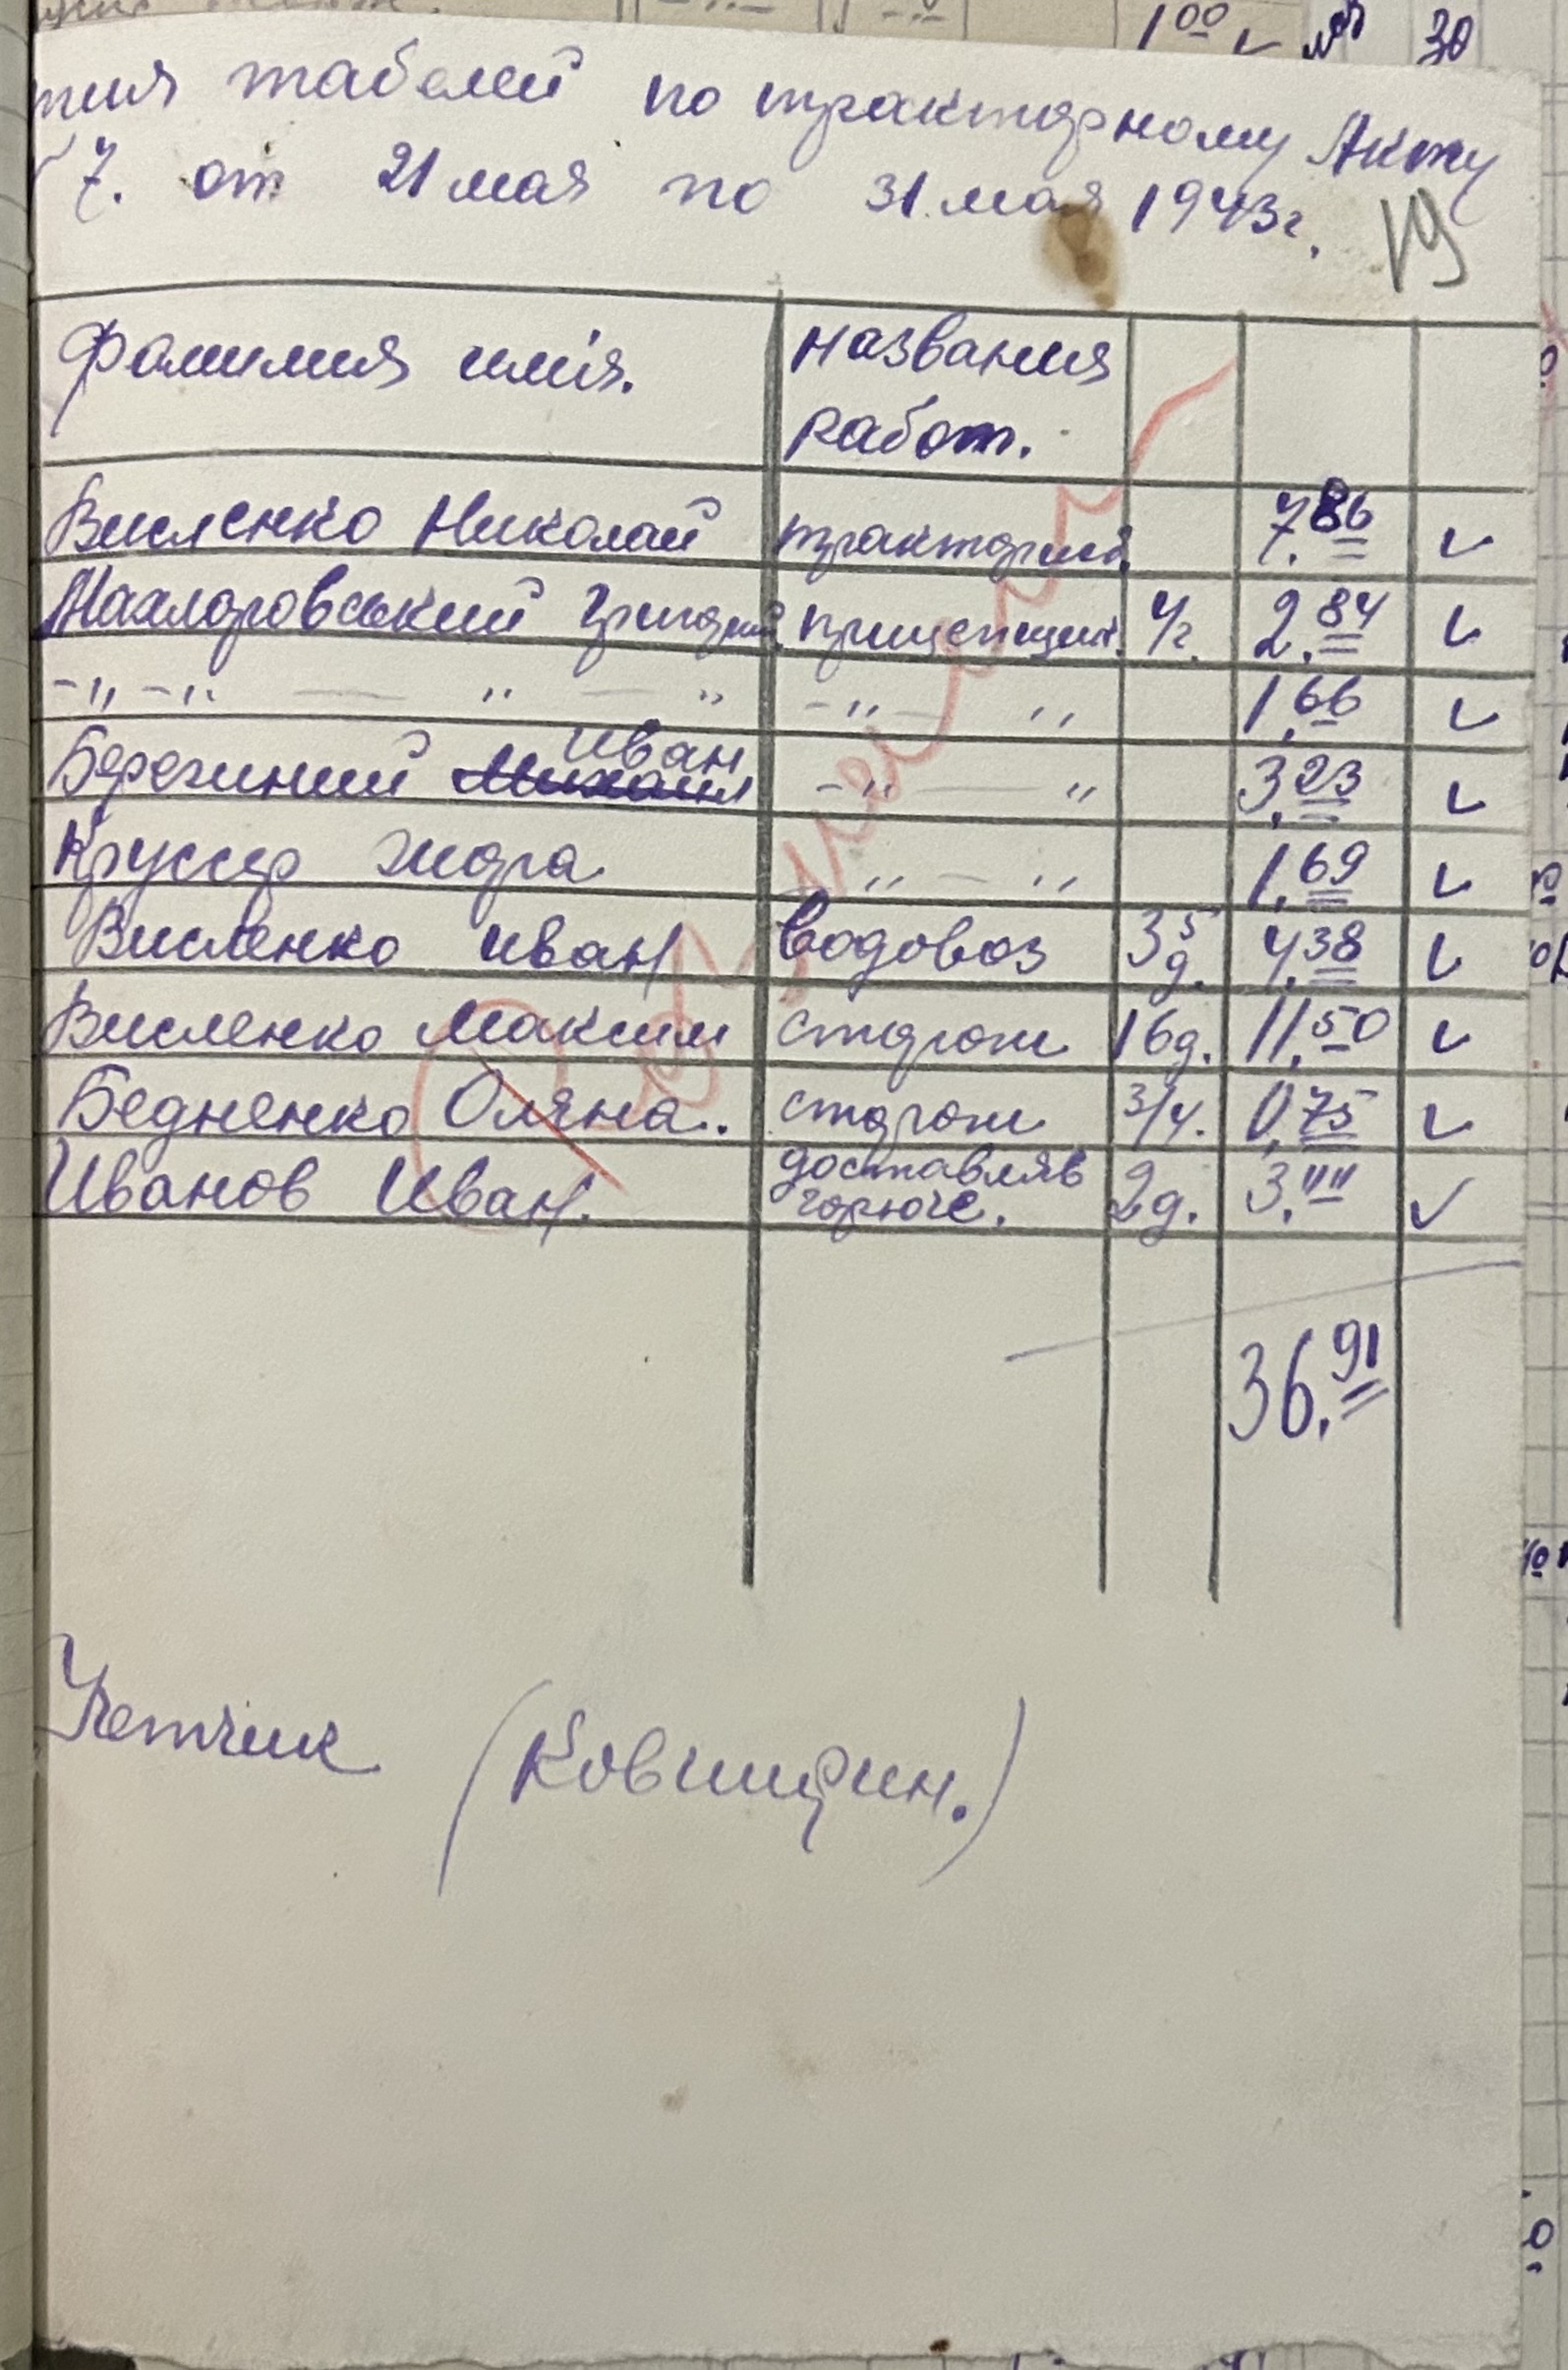 1 00 30
тия табелей по тракторному Акту
7. от 21 мая по 31 мая 1943г.
19
Фамилия имія. названия
работ.
Висленко Николай тракторист. 7.86
Махлоровський Григорий. прицепщик. 4/г. 2.84
-"-" — " — " -"- " 1,66
Иван
Берегиний Михаил -"- " 3,23
Круссер Жидра " — " 1,69
Висленко иван водовоз 3 5 д. 4,38
Висленко Максим сторож 16д. 11.50
Бедненко Оляна. сторож 3/4. 0,75
Иванов Иван. доставляв
горюче. 2д. 3.""
36.91
Учетчик (Ковширин.)